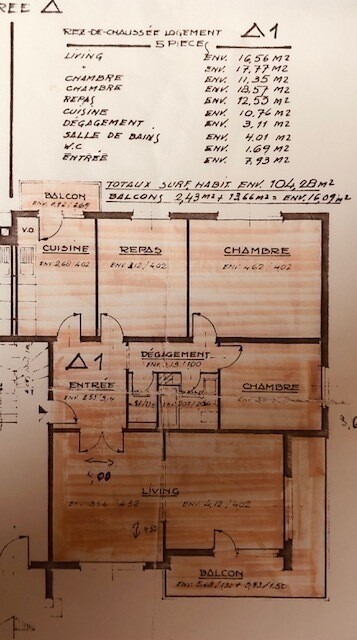 RÉE Δ
REZ-DE-CHAUSSÉE LOGEMENT Δ1
5 PIECES
LIVING ENV. 16,56 M2
" ENV. 17,77 M2
CHAMBRE ENV. 11,35 M2
CHAMBRE ENV. 18,57 M2
REPAS ENV. 12,53 M2
CUISINE ENV. 10,76 M2
DÉGAGEMENT ENV. 3,11 M2
SALLE DE BAINS ENV. 4,01 M2
W.C ENV. 1,69 M2
ENTRÉE ENV. 7,93 M2
TOTAUX SURF HABIT ENV. 104,28 M2
BALCONS 2,43 M2 + 13,66 M2 = ENV. 16,09 M2
BALCON
V.O.
CUISINE REPAS CHAMBRE
ENV. 2,68/402 ENV. 3,12/402 ENV. 4,62/402
Δ1
DÉGAGEMENT
ENTRÉE
CHAMBRE
LIVING
ENV. 4,12/402
BALCON